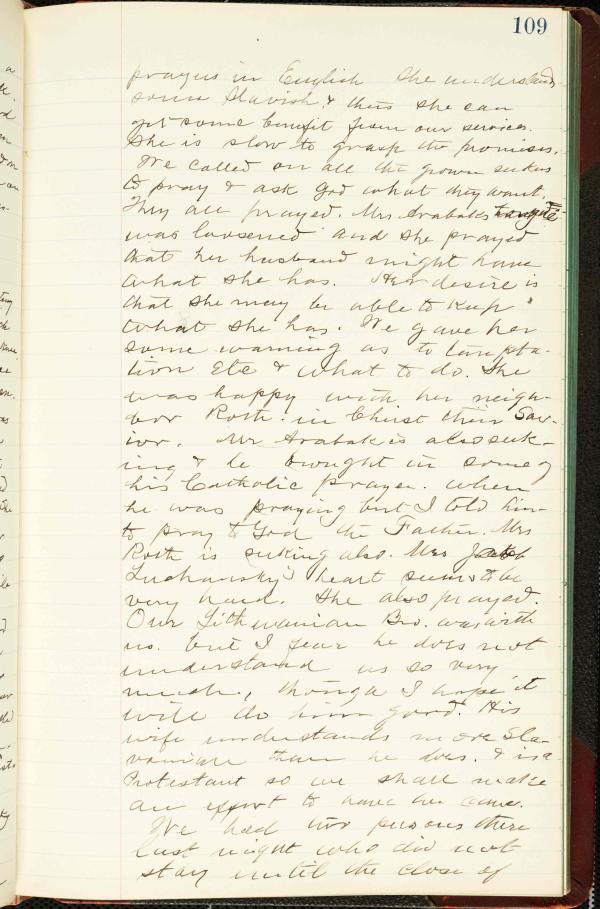 109
prayers in English She understands
some Slavish, & thus she can
get some benefit from our services.
She is slow to grasp the promises.
We called on all the grown seekers
to pray & ask God what they want.
They all prayed. Mrs Arabaks tongue
was loosened and she prayed
that her husband might have
what she has. Her desire is
that she may be able to keep
what she has. We gave her
some warning as to tempta-
tion Etc & what to do. She
was happy with her neigh-
bor Roth in Christ their Sav-
ior. Mr Arabak is also seek-
ing & he brought in some of
his Catholic prayer when
he was praying but I told him
to pray to God the Father. Mrs
Roth is seeking also. Mrs Jacob
Luchansky's heart seems to be
very hard. She also prayed.
Our Lithuanian Bro. was with
us. but I fear he does not
understand us so very
much, though I hope it
will do him good. His
wife understands more Sla-
vonian than he does. & is a
Protestant so we shall make
an effort to have her come.
We had two persons there
last night who did not
stay until the close of